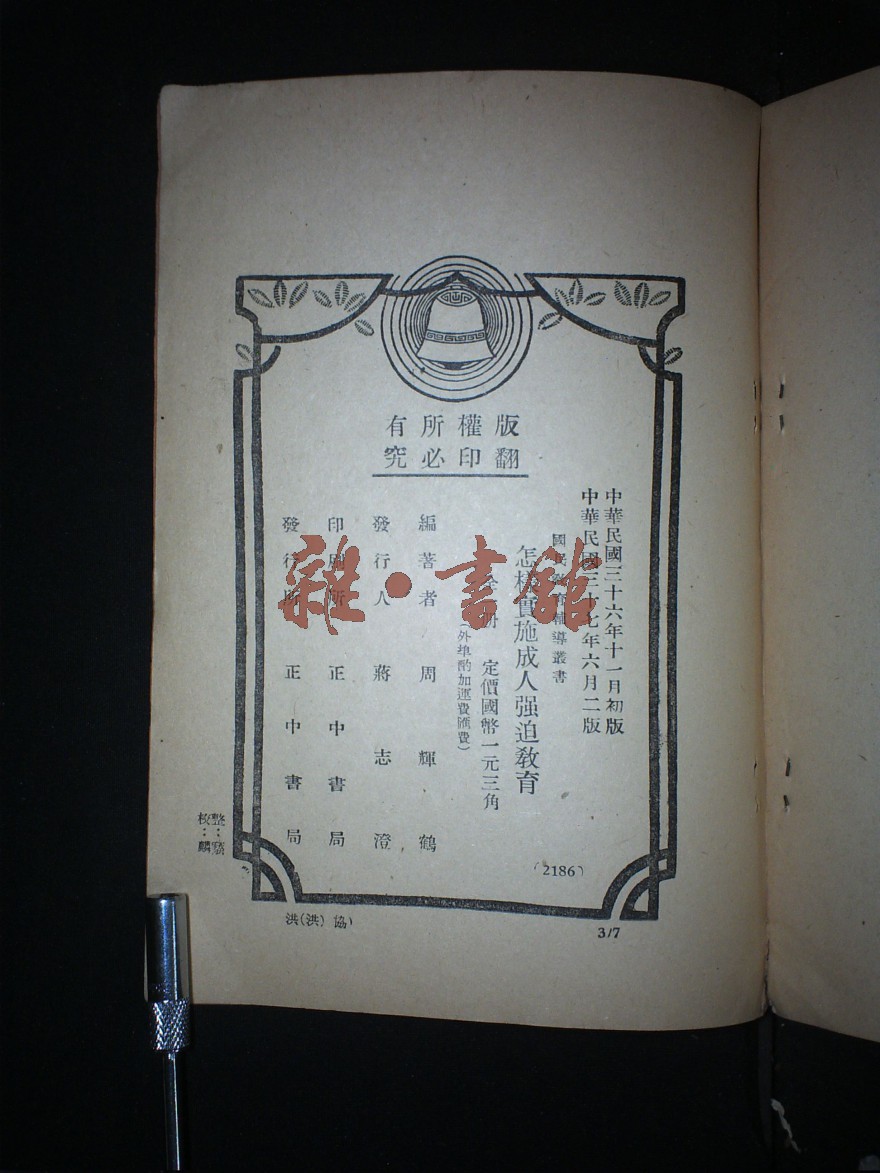 版權所有
翻印必究
中華民國三十六年十一月初版
中華民國三十七年六月二版
國民教育輔導叢書
怎樣實施成人强迫教育
全一册 定價國幣一元三角
(外埠酌加運費匯費)
編著者 周輝鶴
發行人 蔣志澄
印刷所 正中書局
發行所 正中書局
(2186)
整:
校:麟
洪(洪)(協)
3/7
雜·書館